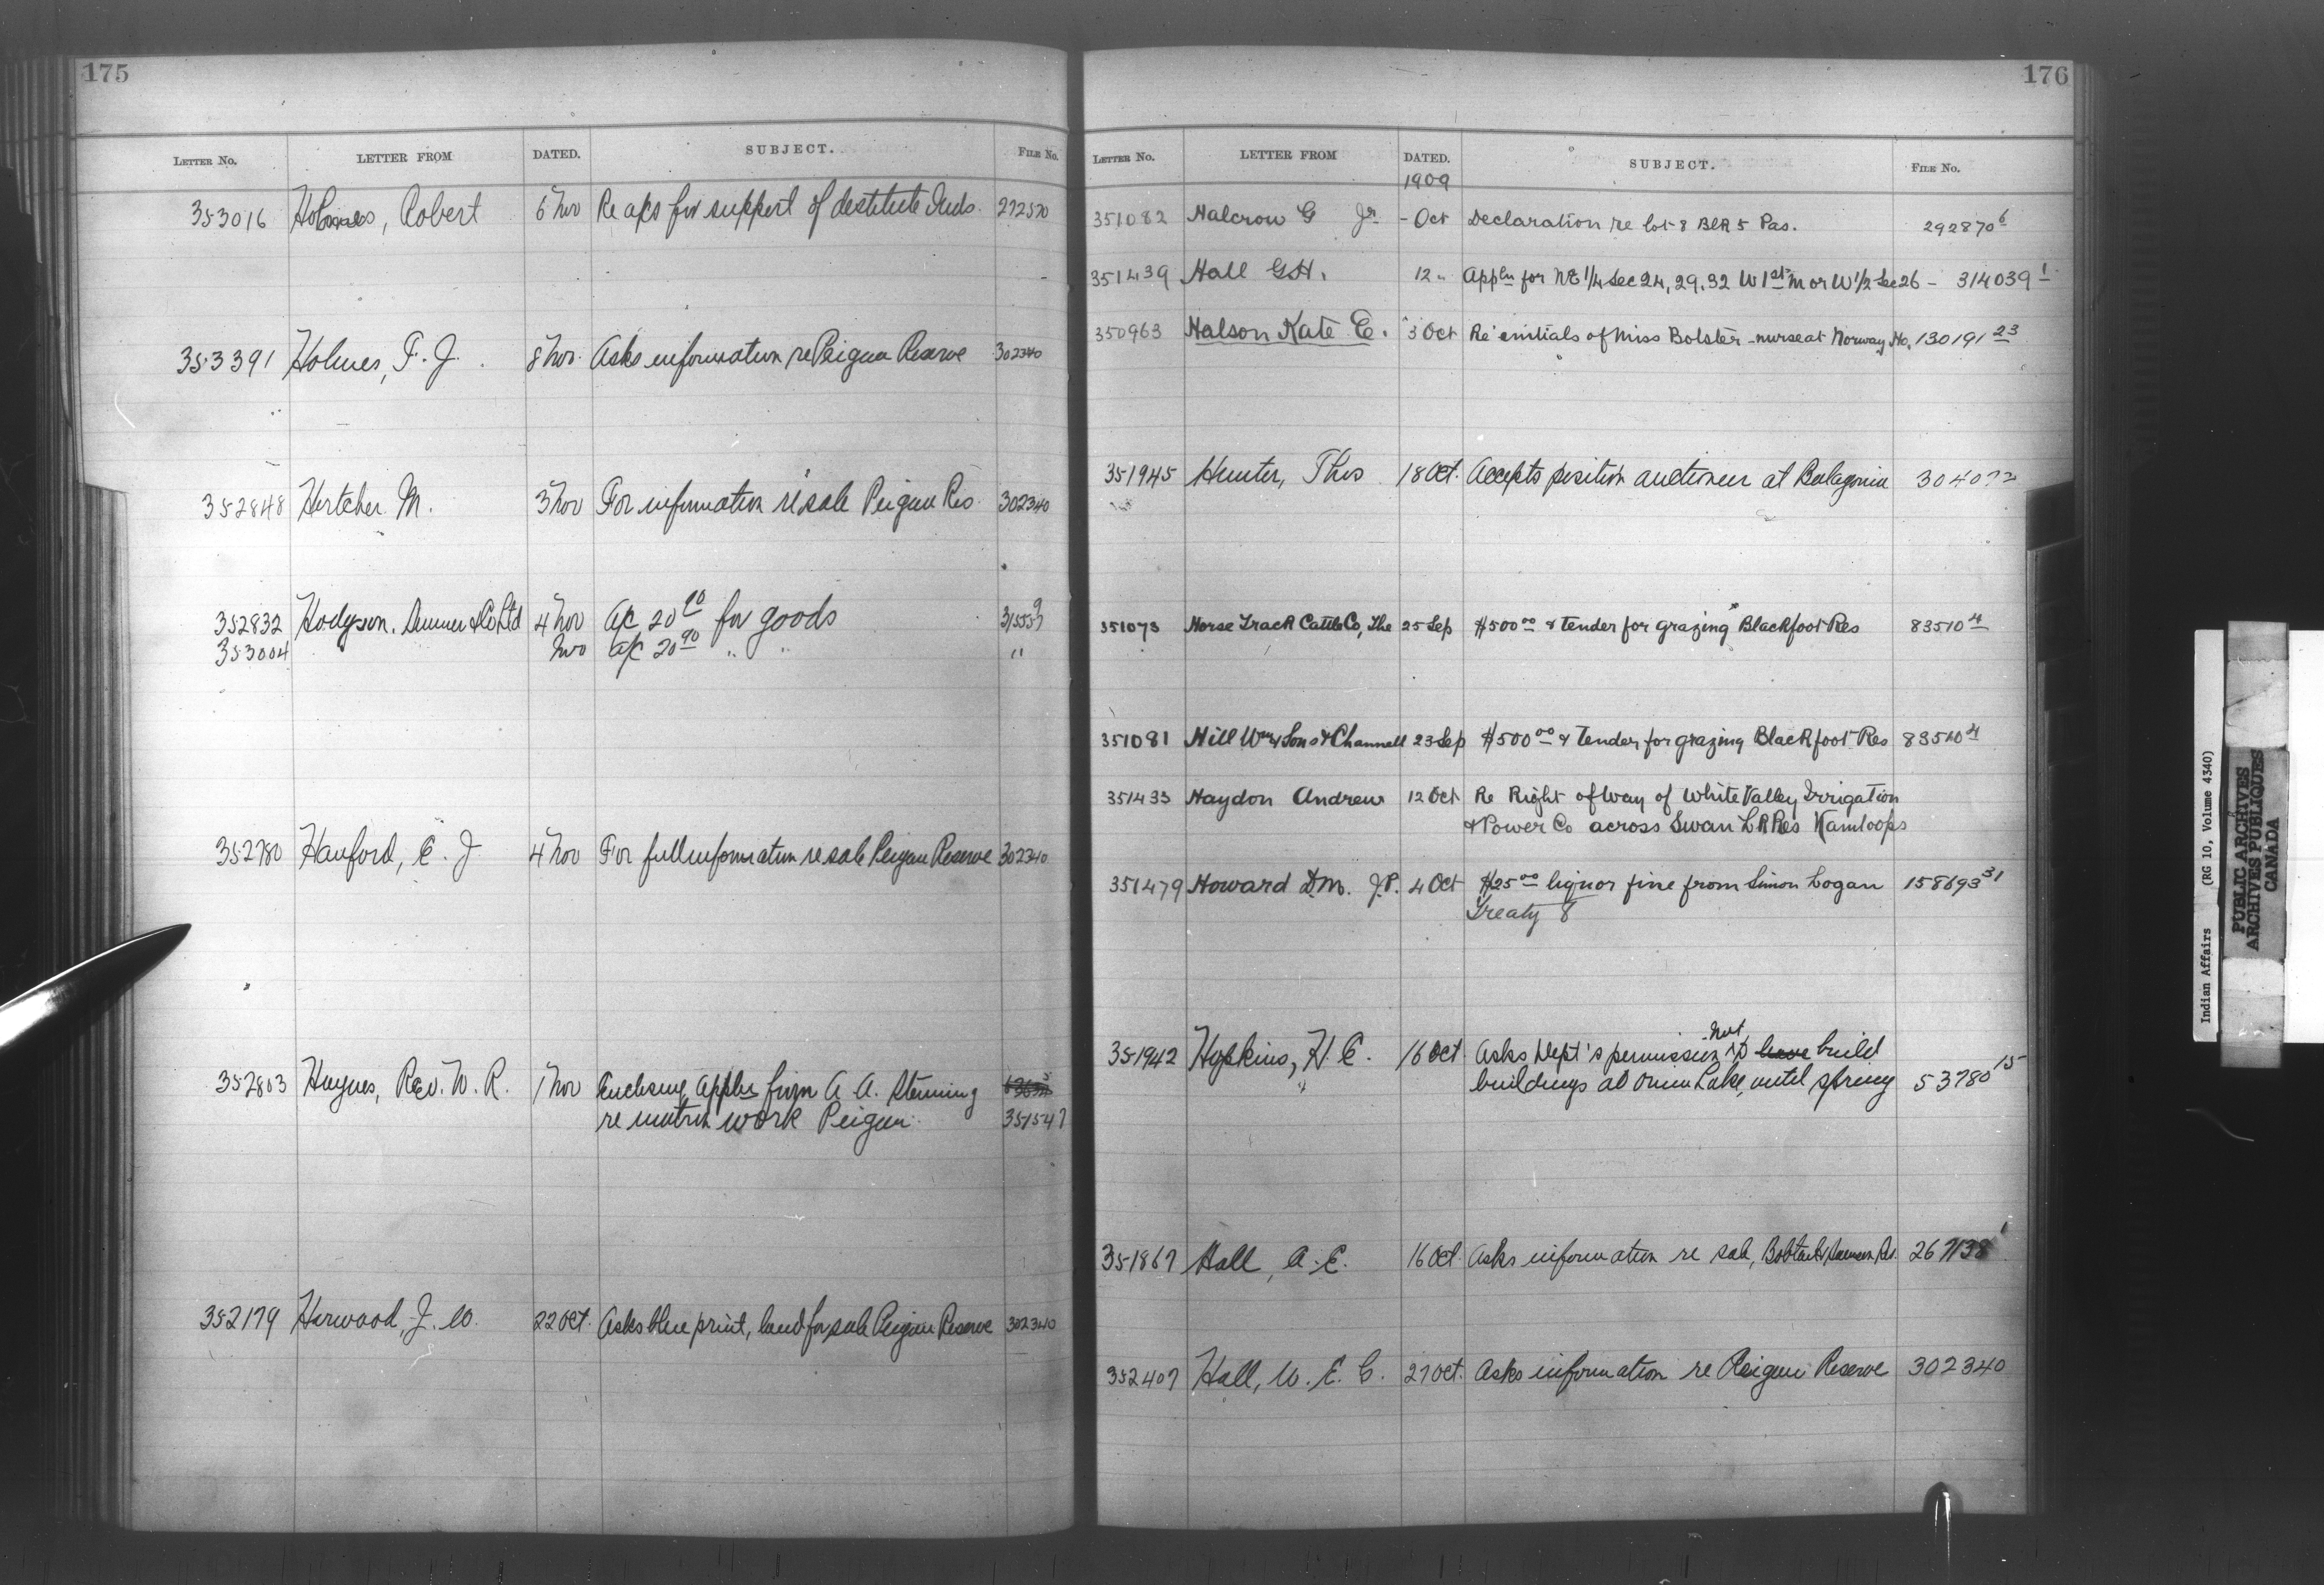 175
LETTER No. LETTER FROM DATED. SUBJECT. FILE No.
353016 Holmes, Robert 6 Nov Re a/cs for support of destitute Inds. 272520
353391 Holmes, F. J. 8 Nov. Asks information re Peigan Reserve 302340
352848 Hertcher M. 3 Nov For information re sale Peigan Res. 302340
352832 Hodgson, Sumner & Co Ltd 4 Nov a/c 20 for goods
353004 Nov a/c 20 90 " " "
352780 Hanford, E. J 4 Nov For full information re sale Peigan Reserve 302340
352803 Haynes, Rev. W. R. 1 Nov Enclosing Appln from A. A. Stenning
re matron work Peigan. 351547
352179 Harwood, J. W. 22 Oct. Asks blue print, land for sale Peigan Reserve 302340
176
LETTER No. LETTER FROM DATED. SUBJECT. FILE No.
1909
351082 Halcrow G Jr - Oct Declaration re lot 8 Blk 5 Pas. 292870 6
351439 Hall G.H. 12 " Appln for NE 1/4 Sec 24, 29, 32 W 1st M or W 1/2 Sec 26 - 314039 1
350963 Halson Kate E. 3 Oct Re initials of Miss Bolster - nurse at Norway Ho. 130191 23
351945 Hunter, Thos 18 Oct. Accepts position auctioneer at Balagonia 304072
351073 Horse Track Cattle Co, The 25 Sep $500 00 & tender for grazing Blackfoot Res 83510 4
351081 Hill Wm & Sons & Channell 23 Sep $500 00 & Tender for grazing Blackfoot Res 83510 4
351433 Haydon Andrew 12 Oct Re Right of Way of White Valley Irrigation
& Power Co across Swan Lk Res Kamloops
351479 Howard D.M. J.P. 4 Oct $25 00 liquor fine from Simon Logan 158693 31
Treaty 8
not
351942 Hopkins, H. E. 16 Oct. Asks Dept's permission to have build
buildings at Onion Lake, until spring 53780 15
351867 Hall, A. E. 16 Oct. Asks information re sale, Bobtail & Samson Rs. 267138 1
352407 Hall, W. E. C. 27 Oct. Asks information re Peigan Reserve 302340
Indian Affairs (RG 10, Volume 4340)
PUBLIC ARCHIVES
ARCHIVES PUBLIQUES
CANADA